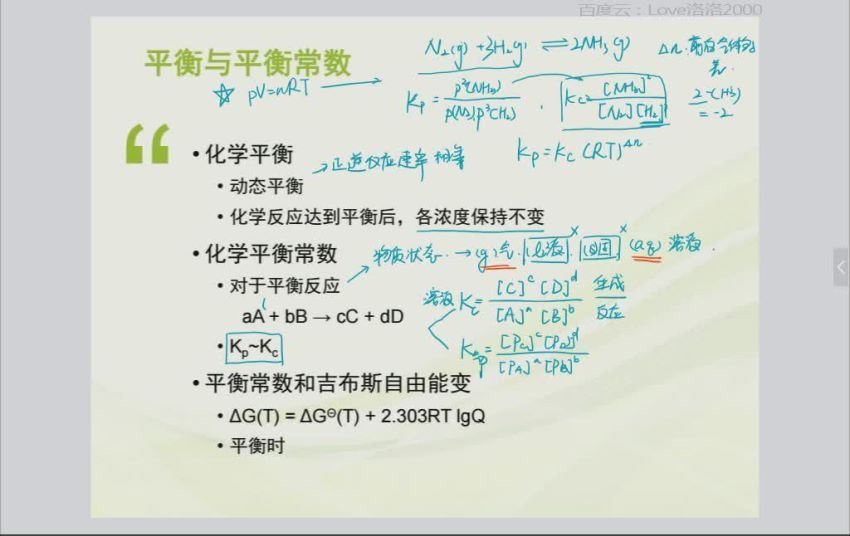 百度云：Love洛洛2000
平衡与平衡常数
N₂(g) + 3H₂(g) ⇌ 2NH₃(g)
Δn 前后气体分子差.
☆ pV=nRT
Kp = p²(NH₃) / p(N₂)p³(H₂) , Kc= [NH₃]² / [N₂][H₂]³
2-(1+3) = -2
Kp = Kc (RT)^Δn
“
• 化学平衡
→ 正逆反应速率相等
• 动态平衡
• 化学反应达到平衡后，各浓度保持不变
• 化学平衡常数
物质状态. → (g)气. (l)液 × . (s)固 × (aq) 溶液.
• 对于平衡反应
aA + bB → cC + dD
溶液 Kc = [C]^c [D]^d / [A]^a [B]^b 生成 / 反应
• Kp~Kc
Kp = [Pc]^c [PD]^d / [PA]^a [PB]^b
• 平衡常数和吉布斯自由能变
• ΔG(T) = ΔG^Θ(T) + 2.303RT lgQ
• 平衡时